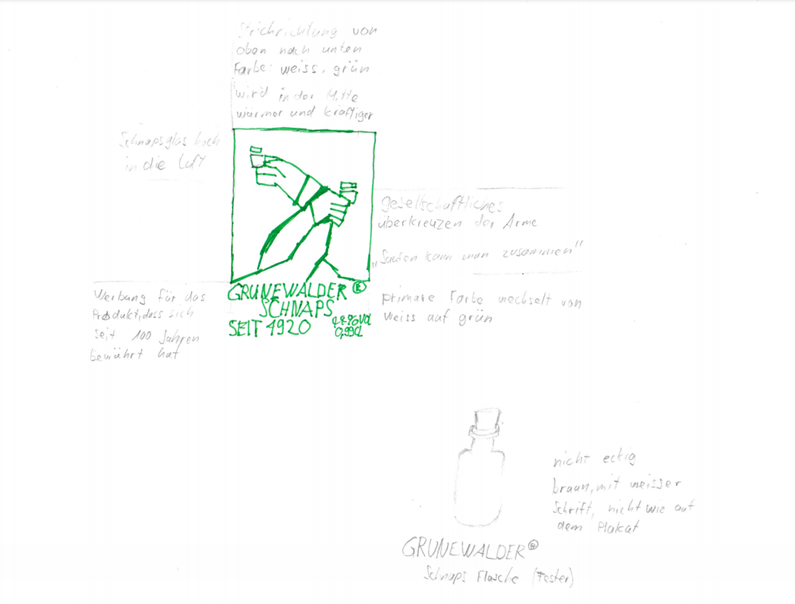 Strichrichtung von
oben nach unten
Farbe: weiss, grün
wird in der Mitte
wärmer und kräftiger
Schnapsglas hoch
in die Luft
Gesellschaftliches
überkreuzen der Arme
"Saufen kann man zusammen"
Werbung für das
Produkt, dass sich
seit 100 Jahren
bewährt hat
primäre Farbe wechselt von
weiss auf grün
GRUNEWALDER ®
SCHNAPS
SEIT 1920
nicht eckig
braun, mit weisser
Schrift, nicht wie auf
dem Plakat
GRUNEWALDER ®
Schnaps Flasche